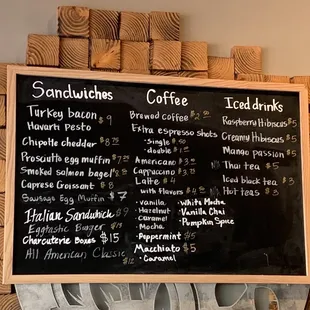 Sandwiches
Turkey bacon $9
Havarti pesto
Chipotle cheddar $8.75
Prosciutto egg muffin $7.25
Smoked salmon bagel
Caprese Croissant $8
Sausage Egg Muffin $7
Italian Sandwich $9
Eggtastic Burger
Charcuterie Boxes $15
All American Classic
Coffee
Brewed coffee
Extra espresso shots
• single
• double
Americano
Cappuccino
Latte $4
with flavors
• vanilla
• Hazelnut
• Caramel
Mocha
• Peppermint $5
• White Mocha
• Vanilla Chai
• Pumpkin Spice
Macchiato $5
• Caramel
Iced drinks
Raspberry Hibiscus $5
Creamy Hibiscus $5
Mango passion $5
Thai tea $5
Iced black tea $3
Hot teas $3